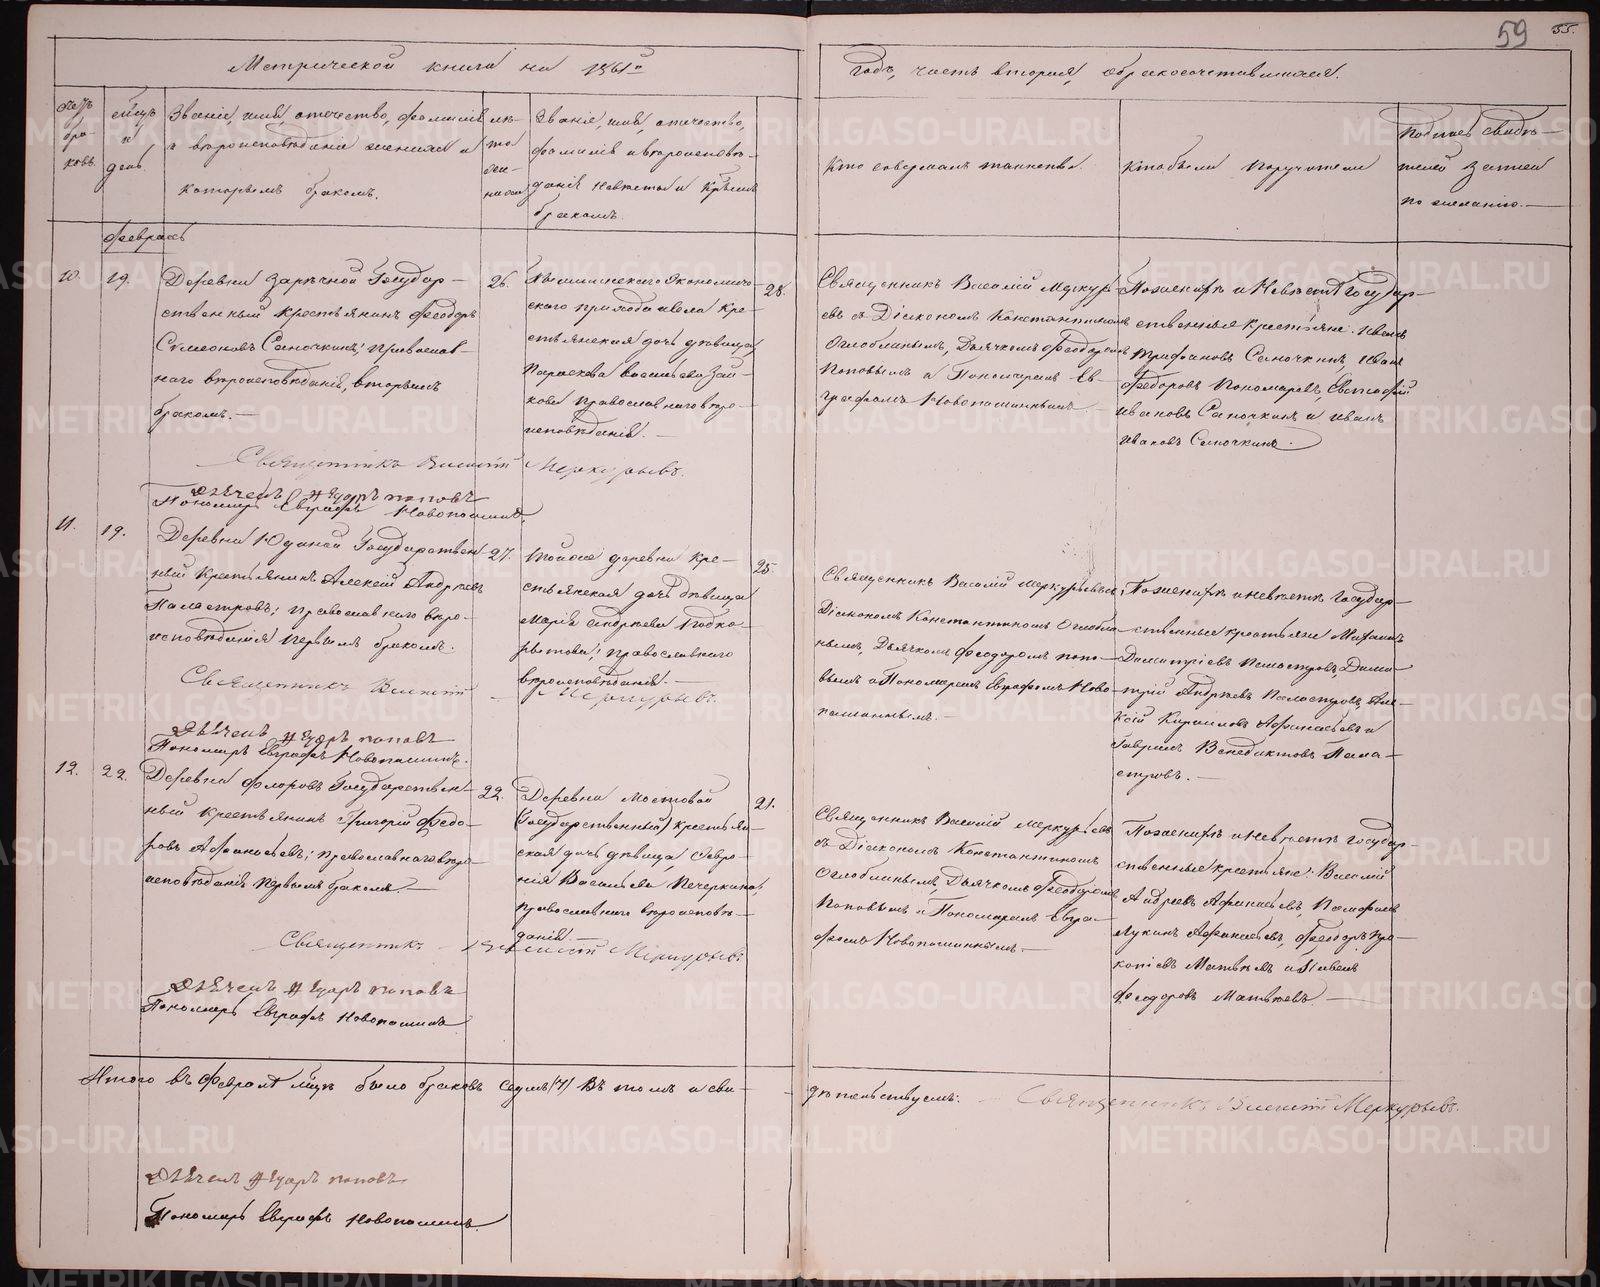 59
55.
Метрической книги на 1861й
Годъ, часть вторая, о бракосочетавшихся.
Счетъ браковъ.
мѣсяцъ и день.
Званіе, имя, отечество, фамилія
и вѣроисповѣданіе жениха и
которымъ бракомъ.
лѣта жениха
Званіе, имя, отечество,
фамилія и вѣроисповѣ-
даніе невѣсты и которымъ
бракомъ.
Кто совершалъ таинство.
Кто были поручители
Подпись свидѣ-
телей записи
по желанію.
февраль
10.
19.
Деревни Зарѣчной Государ-
ственный крестьянинъ Феодоръ
Симеоновъ Саночкинъ; православ-
наго вѣроисповѣданія, вторымъ
бракомъ.
26.
скаго прихода села кре-
стьянская дочь дѣвица
Параскева Васильева Зай-
кова православнаго вѣро-
исповѣданія.
28.
Священникъ Василій Меркурь-
евъ съ Діакономъ Константиномъ
Оглоблинымъ, Дьячкомъ Феодоромъ
Поповымъ и Пономаремъ Ев-
графомъ Новопашинымъ.
По женихѣ и невѣстѣ Государ-
ственные крестьяне: Иванъ
Трифоновъ Саночкинъ, Иванъ
Федоровъ Пономаревъ, Евстафій
Ивановъ Саночкинъ и Иванъ
Ивановъ Саночкинъ.
Священникъ Василій Меркурьевъ.
Дьячекъ Федоръ Поповъ
Пономарь Евграфъ Новопашинъ.
11.
19.
Деревни Юдиной Государствен-
ный крестьянинъ Алексѣй Андреевъ
Паластровъ; православнаго вѣро-
исповѣданія первымъ бракомъ.
27.
Тойже деревни кре-
стьянская дочь дѣвица
Марія Андреева Подко-
рытова; православнаго
вѣроисповѣданія.
25.
Священникъ Василій Меркурьевъ съ
Діакономъ Константиномъ Оглобли-
нымъ, Дьячкомъ Феодоромъ Попо-
вымъ и Пономаремъ Евграфомъ Ново-
пашинымъ.
По женихѣ и невѣстѣ Государ-
ственные крестьяне
Димитріевъ Паластровъ, Дими-
трій Андреевъ Паластровъ, Але-
ксѣй Кириловъ Афанасьевъ и
Гавріилъ Венедиктовъ Пала-
стровъ.
Священникъ Василій Меркурьевъ.
Дьячекъ Федоръ Поповъ
Пономарь Евграфъ Новопашинъ.
12.
22.
Деревни Фроловой Государствен-
ный крестьянинъ Григорій Федо-
ровъ Афанасьевъ; православнаго вѣро-
исповѣданія первымъ бракомъ.
22.
Деревни Мостовой
(Государственный) крестьян-
ская дочь дѣвица, Февро-
нія Васильева Печеркина,
православнаго вѣроисповѣ-
данія.
21.
Священникъ Василій Меркурьевъ
съ Діакономъ Константиномъ
Оглоблинымъ, Дьячкомъ Феодоромъ
Поповымъ и Пономаремъ Евгра-
фомъ Новопашинымъ.
По женихѣ и невѣстѣ Государ-
ственные крестьяне: Василій
Андреевъ Афанасьевъ, Памфилъ
Лукинъ Афанасьевъ, Феодоръ Про-
копіевъ Матвѣевъ и Павелъ
Феодоровъ Матвѣевъ
Священникъ Василій Меркурьевъ.
Дьячекъ Федоръ Поповъ
Пономарь Евграфъ Новопашинъ
Итого въ февралѣ мѣсяцѣ было браковъ седмь (7) Въ томъ и сви-
дѣтельствуемъ: Священникъ Василій Меркурьевъ.
Дьячекъ Федоръ Поповъ
Пономарь Евграфъ Новопашинъ.
METRIKI.GASO-URAL.RU